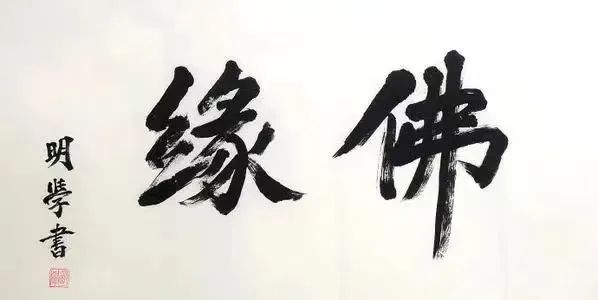 佛缘
明學書